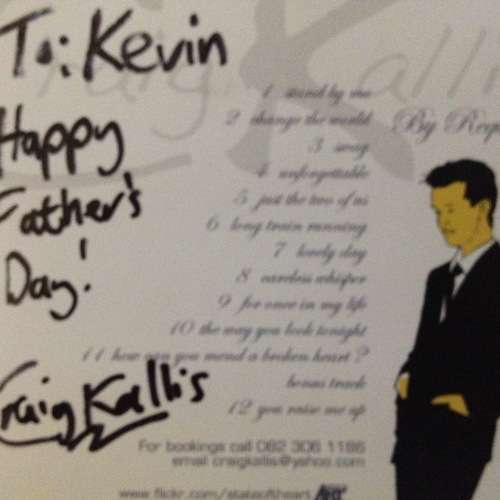 To: Kevin
Happy
Father's
Day!
Craig Kallis
Craig Kallis
By Requ
1 stand by me
2 change the world
3 sway
4 unforgettable
5 just the two of us
6 long train running
7 lovely day
8 careless whisper
9 for once in my life
10 the way you look tonight
11 how can you mend a broken heart?
bonus track
12 you raise me up
For bookings call 082 306 1186
email craigkallis@yahoo.com
www.flickr.com/stateoftheart